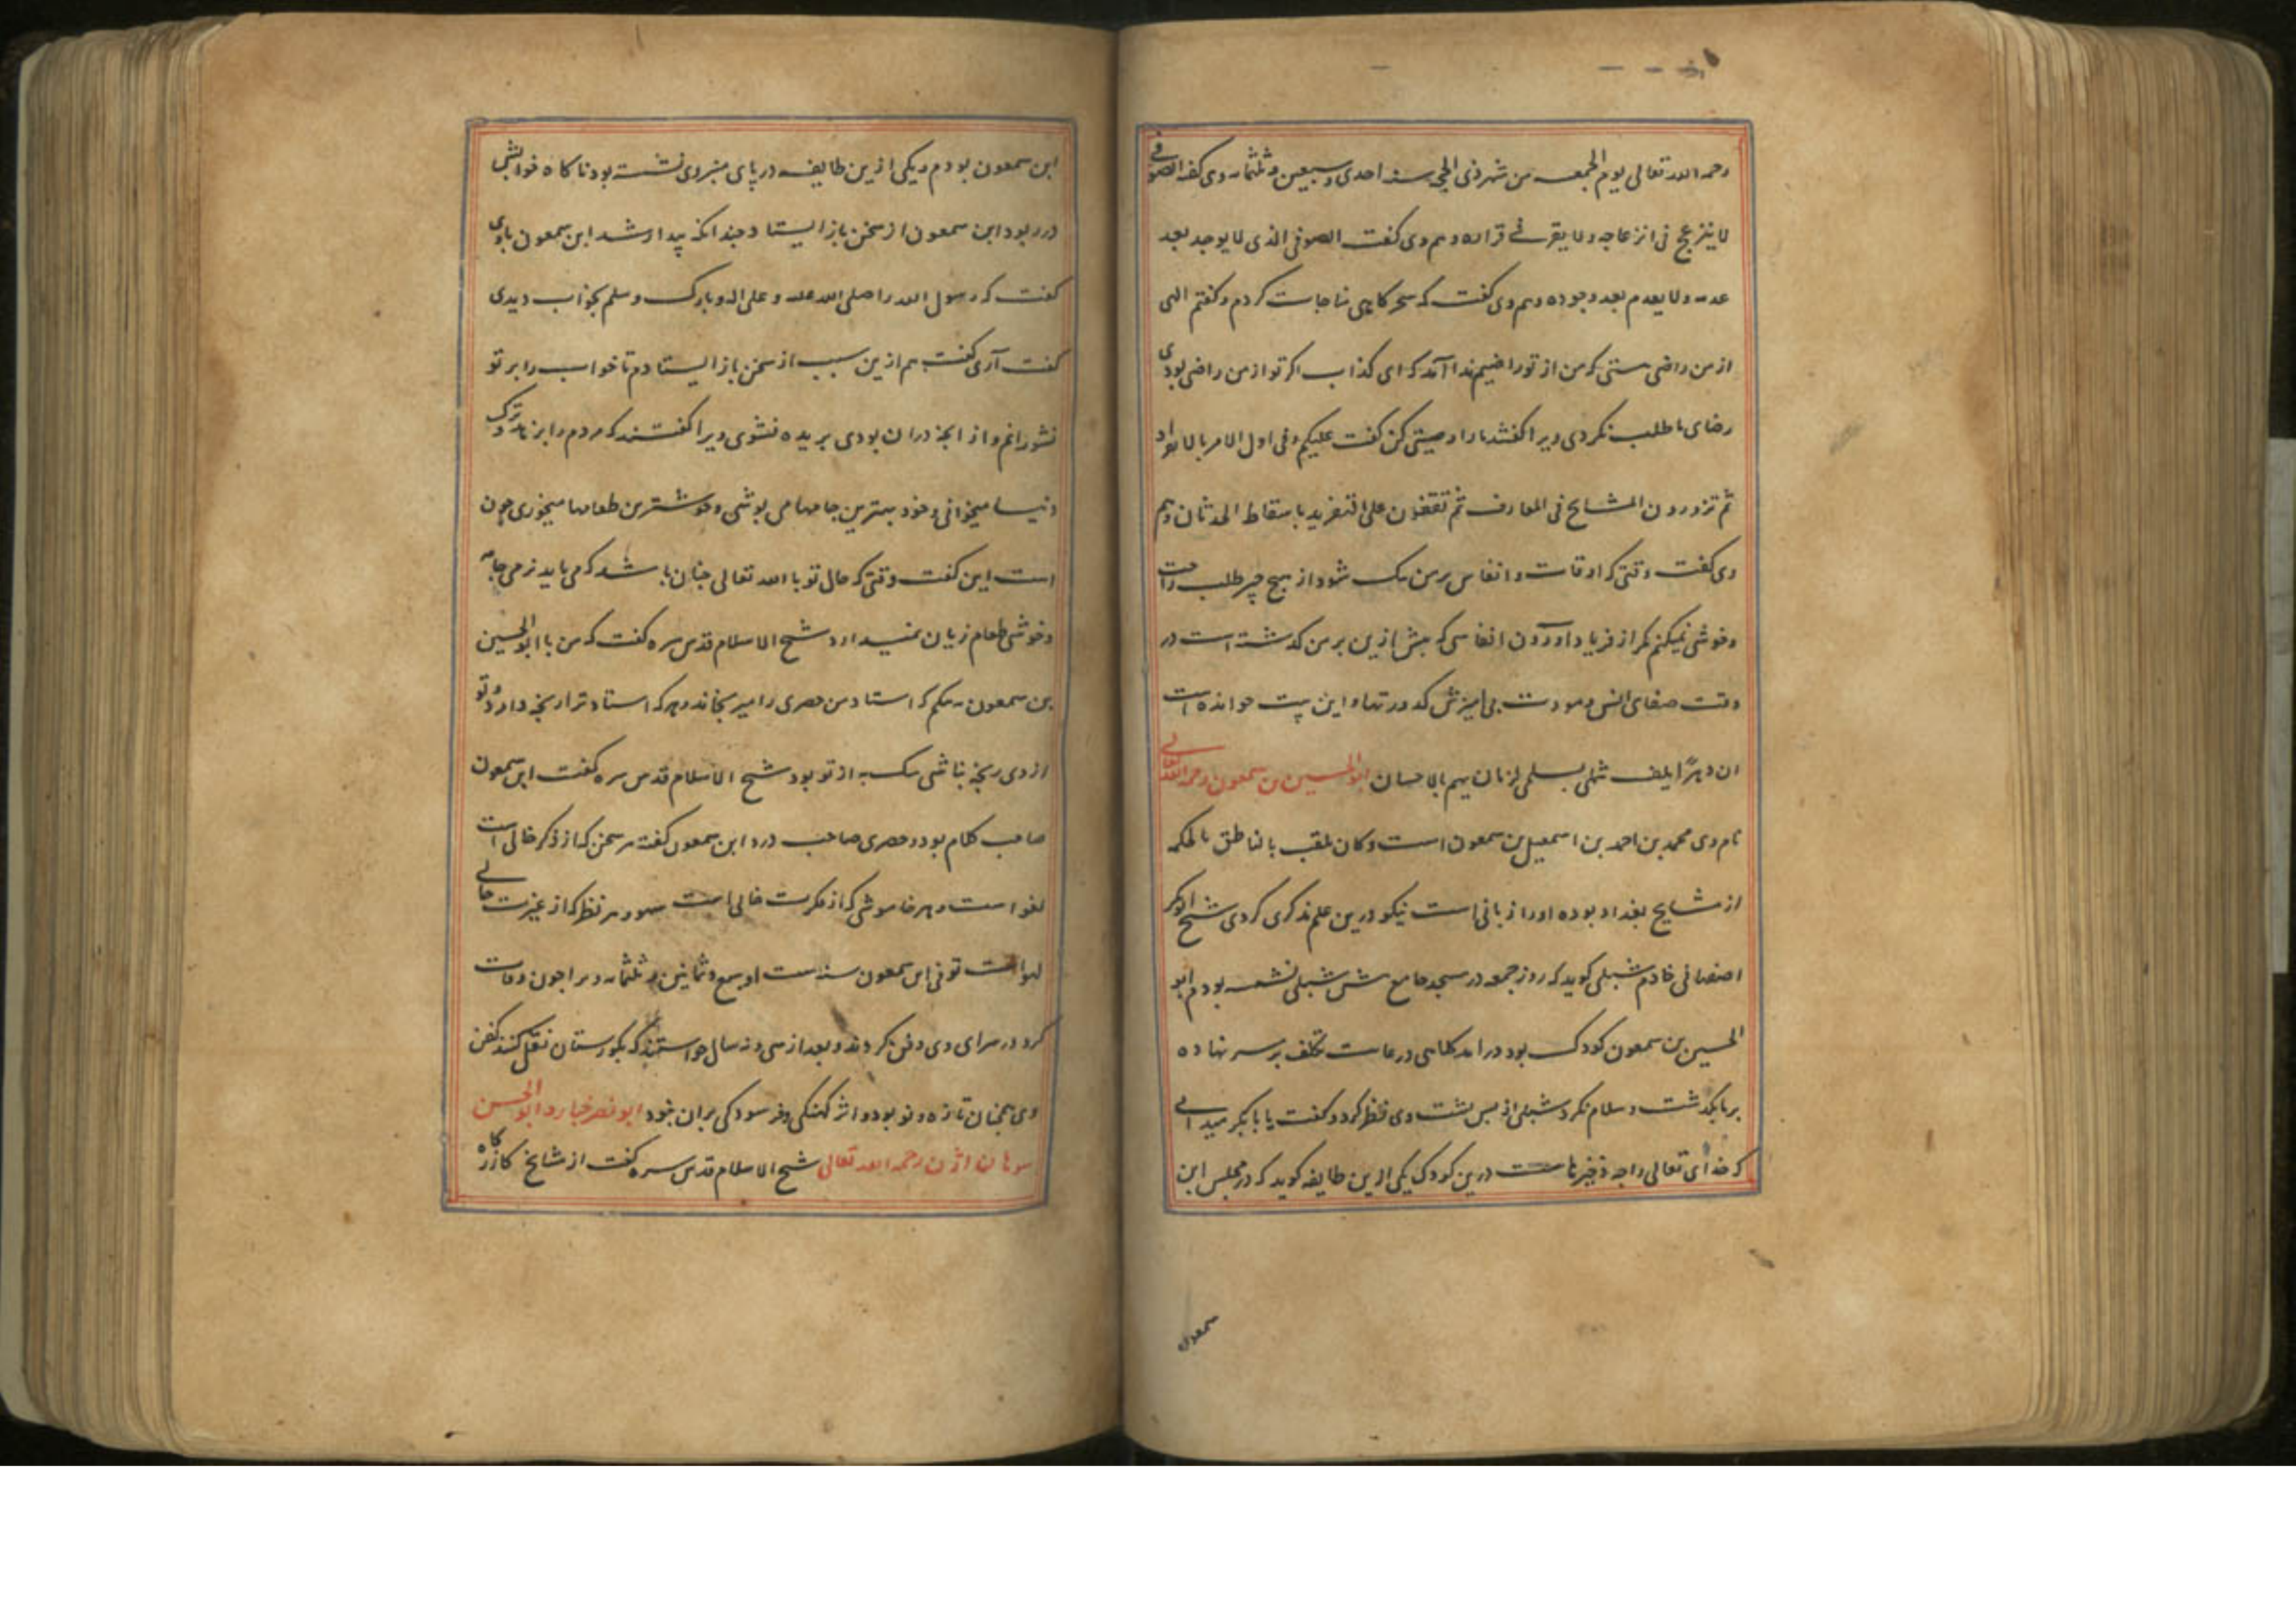 رحمه الله تعالی یوم الجمعه من شهر ذی الحجه سنه احدی و سبعین و ثلثمائه وی گفته الصوفی
لا ینزعج فی انزعاجه ولا یقر فی قراره و هم وی گفت الصوفی الذی لا یوجد بعد
عدمه ولا یعدم بعد وجوده و هم وی گفت که سحرکاهی مناجات کردم و کفتم الهی
از من راضی هستی که من از تو راضیم ندا آمد که ای کذاب اکر تو از من راضی بودی
رضای ما طلب نکردی ویرا کفتند ما را وصیتی کن کفت علیکم فی اول الامر بالانفراد
ثم تزورون المشایخ فی المعارف ثم تقفون علی التفرید باسقاط الحدثان و هم
وی کفت وقتی که اوقات و انفاس بر من تنک شود از هیچ چیز طلب راحت
و خوشی نمیکنم مکر از فریاد آوردن انفاسی که پیش ازین بر من کذشته است در
وقت صفای انس و مودت بی آمیزش کدورتها و این بیت خوانده است
ان دهرا یلف شملی بسلمی لزمان یهم بالاحسان ابو الحسین بن سمعون رحمه الله تعالی
نام وی محمد بن احمد بن اسمعیل بن سمعون است و کان یلقب بالناطق بالحکمه
از مشایخ بغداد بوده او را زبانی است نیکو درین علم تذکری کردی شیخ ابوبکر
اصفهانی خادم شبلی کوید که روز جمعه در مسجد جامع پیش شبلی نشسته بودم ابو
الحسین بن سمعون کودک بود درآمد کلاهی در غایت تکلف بر سر نهاده
بر ما بکذشت و سلام نکرد شبلی از پس پشت وی نظر کرد و کفت یا بابکر میدانی
که خدای تعالی را چه ذخیرهاست درین کودک یکی ازین طایفه کوید که در مجلس ابن
سمعون
ابن سمعون بودم و یکی ازین طایفه در پای منبر وی نشسته بود ناکاه خوابش
در ربود ابن سمعون از سخن باز ایستاد چندانکه بیدار شد ابن سمعون با وی
کفت که رسول الله را صلی الله علیه و علی اله و بارک و سلم بخواب دیدی
کفت آری کفت هم ازین سبب از سخن باز ایستادم تا خواب را بر تو
نشورانم و از آنچه در آن بودی بریده نشوی ویرا کفتند که مردم را بزهد و ترک
دنیا میخوانی و خود بهترین جامها می پوشی و خوشترین طعامها میخوری چون
است این کفت وقتی که حال تو با الله تعالی چنان باشد که می باید نرمی جامه
و خوشی طعام زیان نمیدارد شیخ الاسلام قدس سره کفت که من با ابو الحسین
بن سمعون نه نیکم که استاد من حصری را میرنجاند و هر که استاد ترا رنجه دارد و تو
از وی رنجه نباشی سک به از تو بود شیخ الاسلام قدس سره کفت ابن سمعون
صاحب کلام بود و حصری صاحب درد ابن سمعون کفته هر سخن که از ذکر خالی است
لغو است و هر خاموشی که از فکرت خالی است سهو و هر نظر که از عبرت خالی
لهو است توفی ابن سمعون سنه ست او سبع و ثمانین و ثلثمائه ویرا چون وفات
کرد در سرای وی دفن کردند و بعد از سی و نه سال خواستند که بکورستان نقل کنند کفن
وی همچنان تازه و نو بود و اثر کهنکی و فرسودکی بر آن نبود ابو نصر خباز و ابو الحسن
سوهان آژن رحمه الله تعالی شیخ الاسلام قدس سره کفت از مشایخ کازرکاه